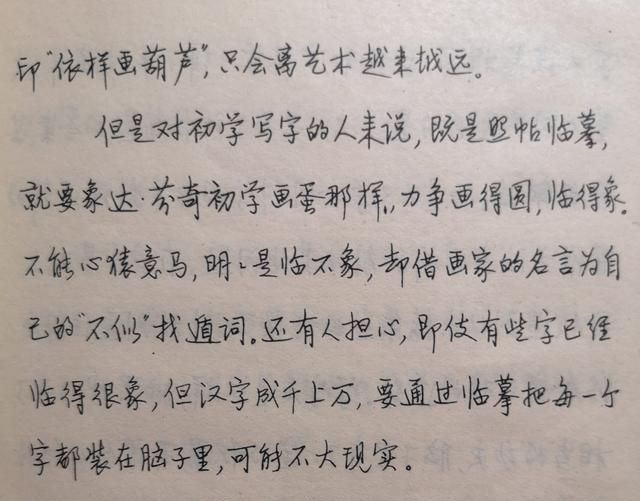 印“依样画葫芦”,只会离艺术越来越远。
但是对初学写字的人来说,既是照帖临摹,
就要象达·芬奇初学画蛋那样,力争画得圆,临得象。
不能心猿意马,明〻是临不象,却借画家的名言为自
己的“不似”找遁词。还有人担心,即使有些字已经
临得很象,但汉字成千上万,要通过临摹把每一个
字都装在脑子里,可能不大现实。